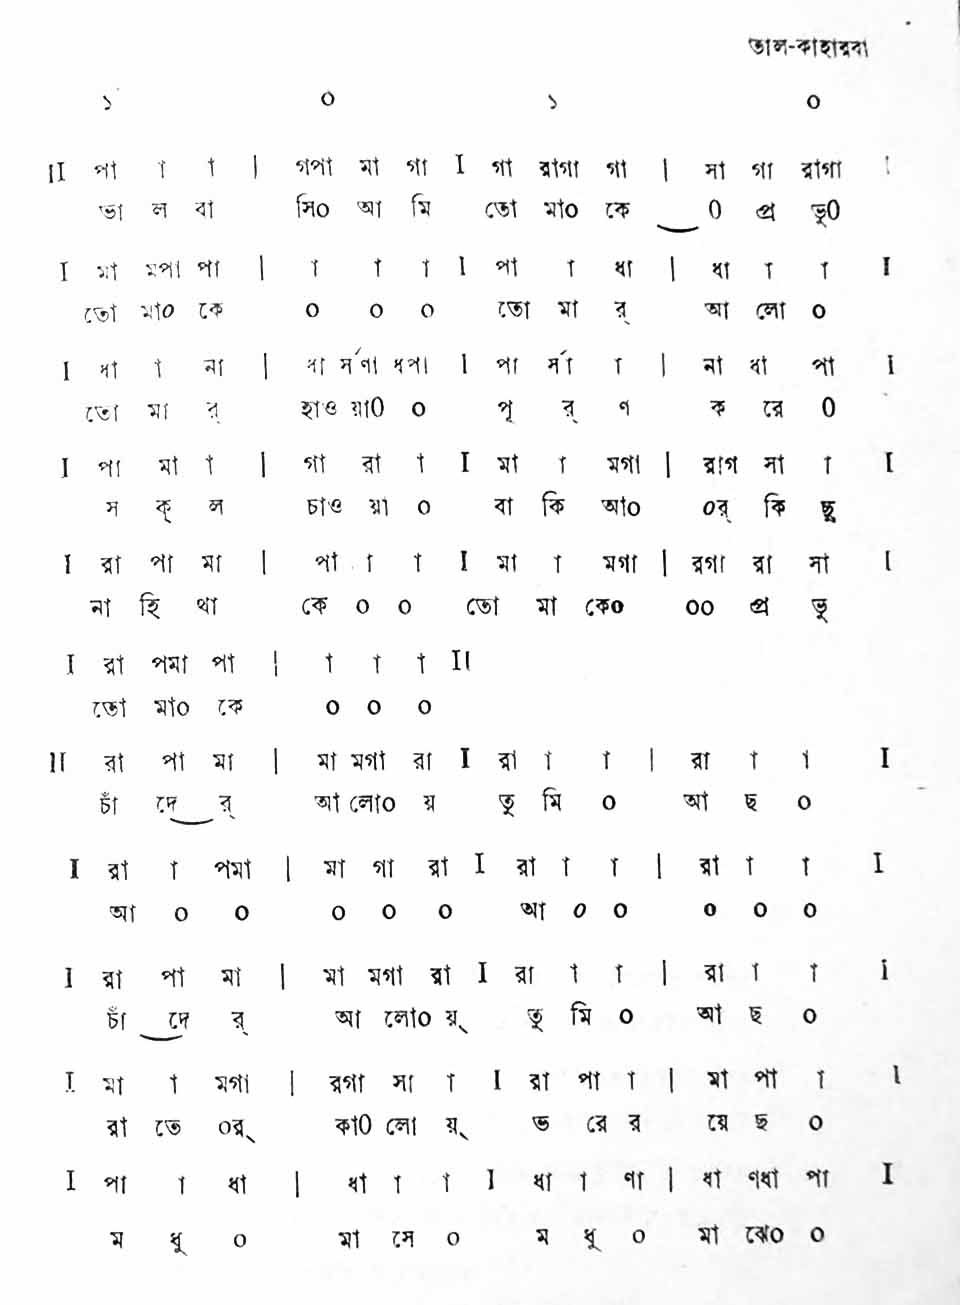 তাল-কাহারবা
১ ০ ১ ০
II পা া া | গপা মা গা I গা রাগা গা | সা গা রাগা I
ভা ল বা সি০ আ মি তো মা০ কে ০ প্র ভু০
I মা মপা পা | া া া I পা া ধা | ধা া া I
তো মা০ কে ০ ০ ০ তো মা র্ আ লো ০
I ধা া না | ধা র্সণা ধপা I পা র্সা া | না ধা পা I
তো মা র্ হাও য়া০ ০ পূ র্ ণ ক রে ০
I পা মা া | গা রা া I মা া মগা | রাগ সা া I
স ক্ ল চাও য়া ০ বা কি আ০ ০র্ কি ছু
I রা পা মা | পা া া I মা া মগা | রগা রা সা I
না হি থা কে ০ ০ তো মা কে০ ০০ প্র ভু
I রা পমা পা | া া া II
তো মা০ কে ০ ০ ০
II রা পা মা | মা মগা রা I রা া া | রা া া I
চাঁ দে র্ আ লো০ য় তু মি ০ আ ছ ০
I রা া পমা | মা গা রা I রা া া | রা া া I
আ ০ ০ ০ ০ ০ আ ০ ০ ০ ০ ০
I রা পা মা | মা মগা রা I রা া া | রা া া I
চাঁ দে র্ আ লো০ য়্ তু মি ০ আ ছ ০
I মা া মগা | রগা সা া I রা পা া | মা পা া I
রা তে ০র্ কা০ লো য়্ ভ রে র য়ে ছ ০
I পা া ধা | ধা া া I ধা া ণা | ধা ণধা পা I
ম ধু ০ মা সে ০ ম ধু ০ মা ঝে০ ০